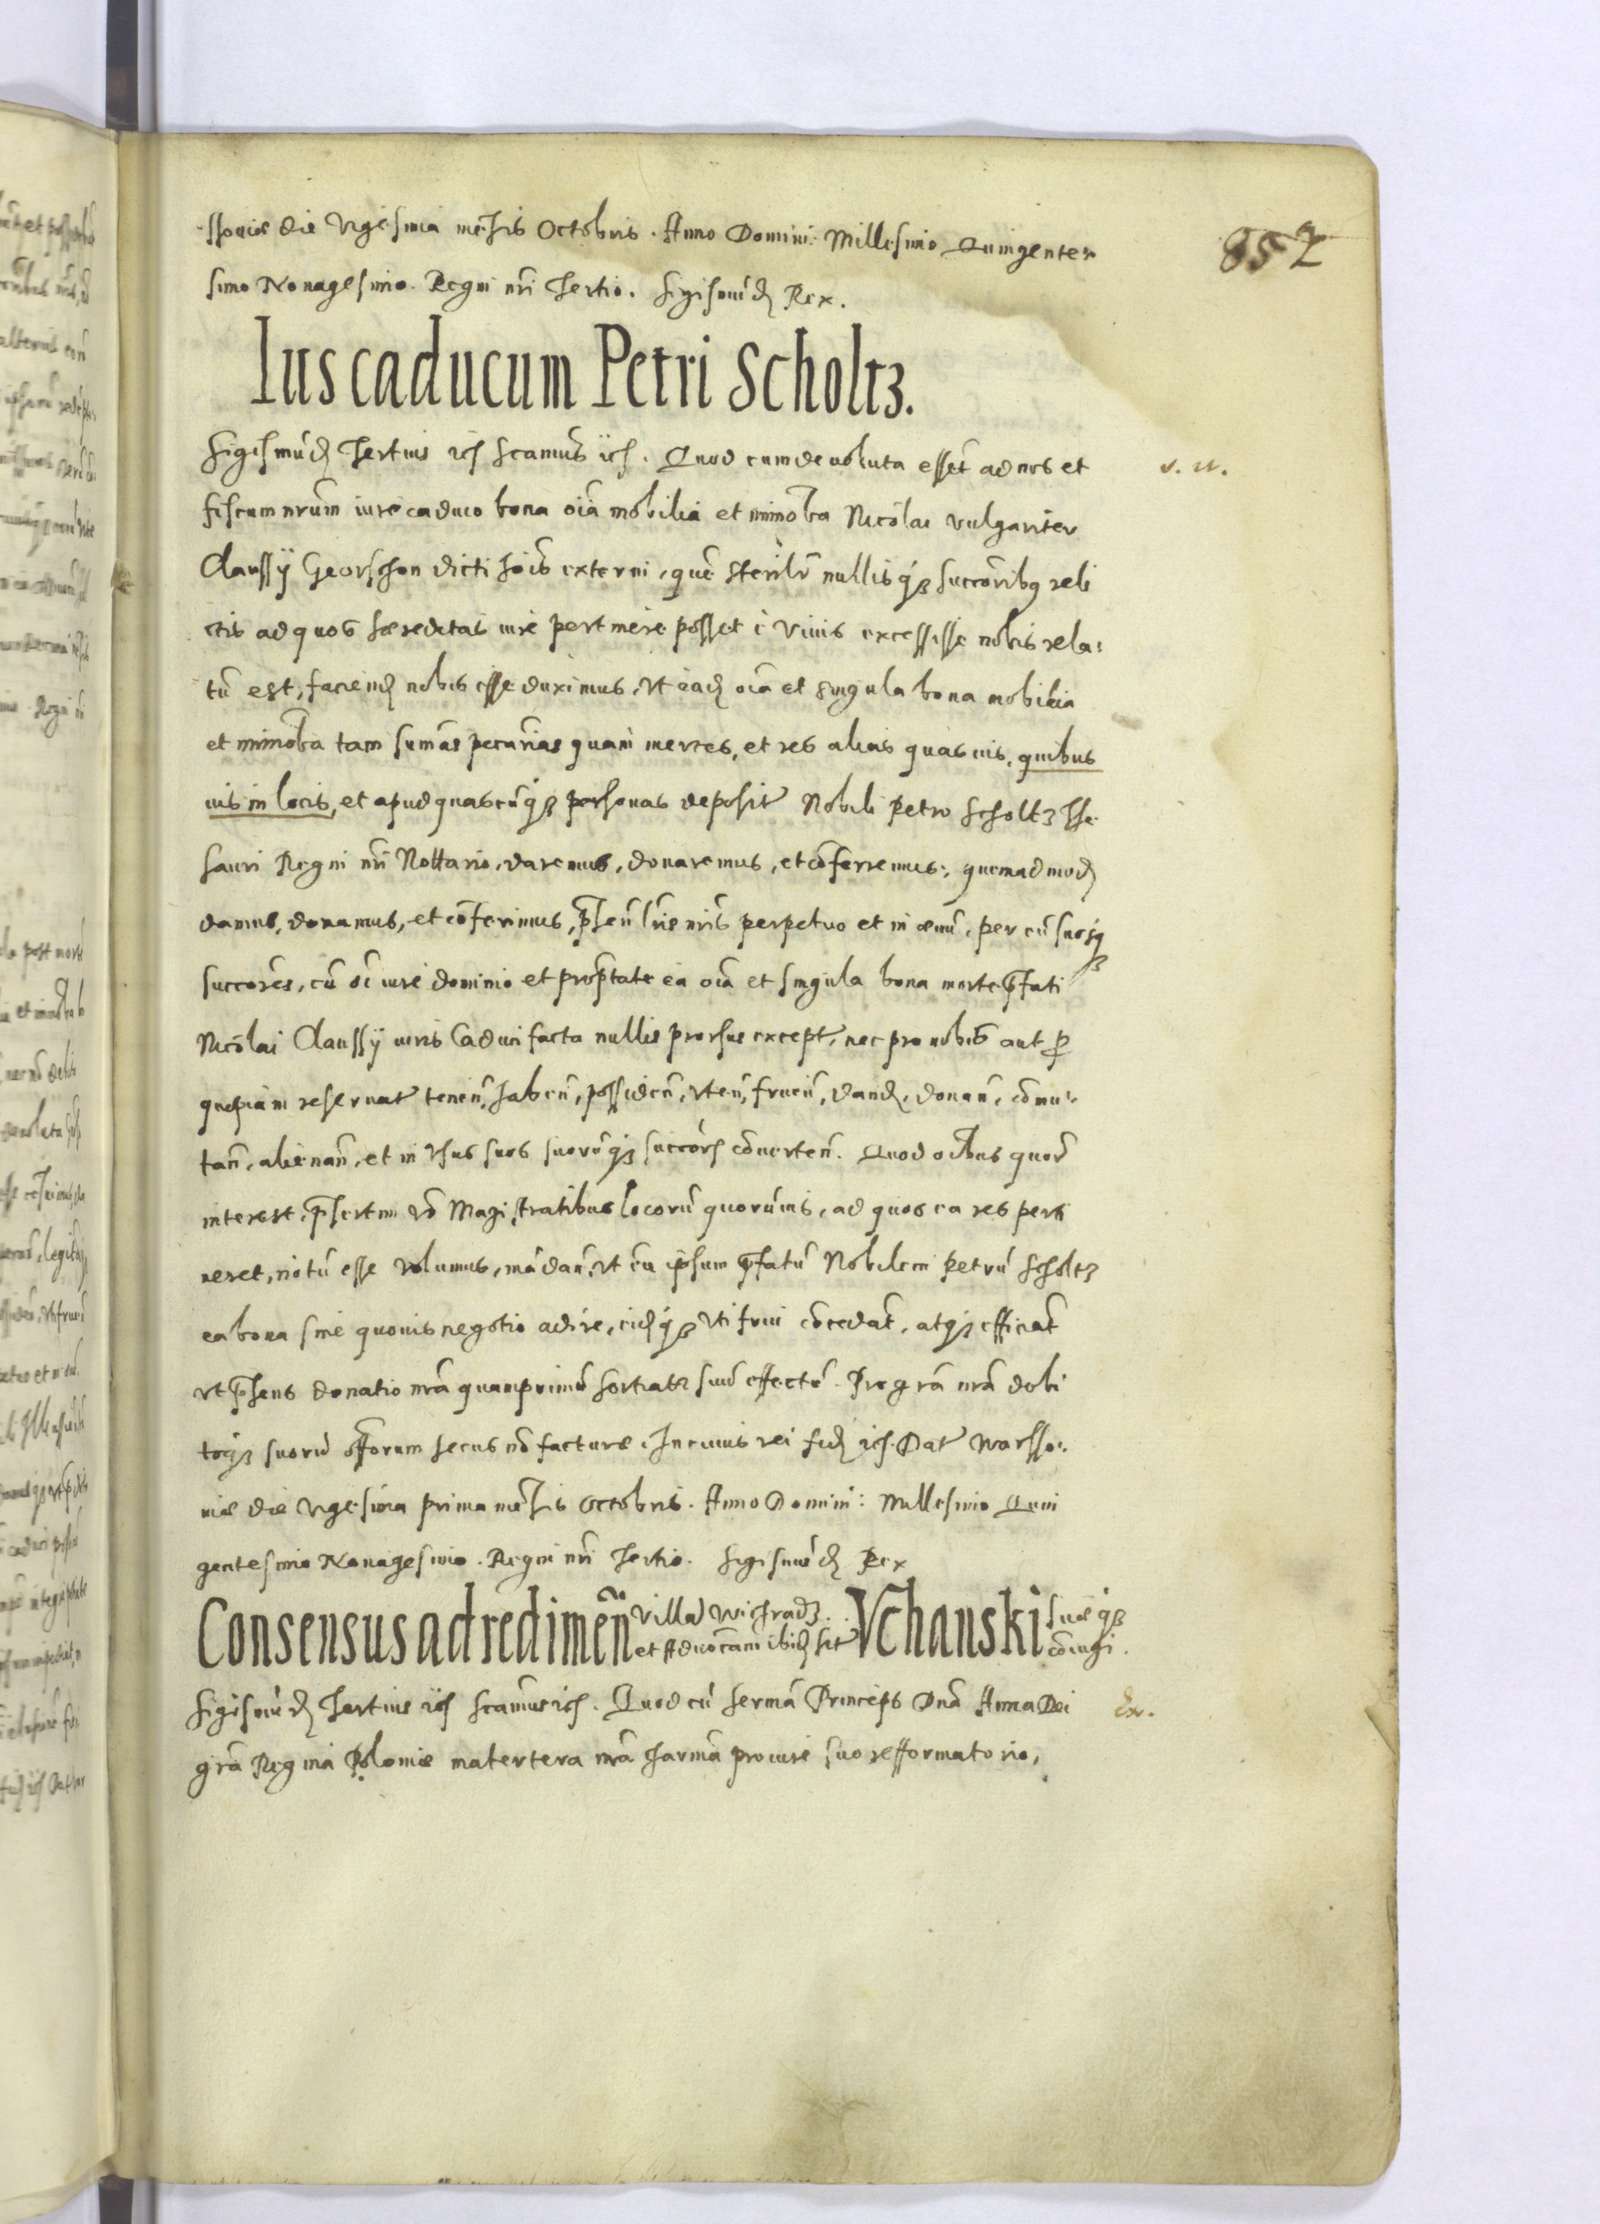 852
ssoviæ die vigesima mēsis Octobris. Anno Domini Millesimo Quingente=
simo Nonagesimo. Regni nr̄i Tertio. Sigismūdꝰ Rex.
Ius caducum Petri Scholtz.
Sigismūdꝰ Tertius etc̄ scamus̄ etc̄. Quod cum devoluta esset ad nos et
v. u.
fiscum nr̄um iure caduco bona oīa mobilia et immob̄a Nicolai vulgariter
Claussÿ Georschon dicti hoīs externi, quē sterilē nullisqꝫ succoribꝰ reli
ctis ad quos hæreditas iure pertinere posset ē vivis excessisse nobis rela=
tū est, faciendꝰ nobis esse duximus, vt eadꝰ oīa et singula bona mobilia
et immob̄a tam summ̄as pecunīas quam merces, et res alias quasvis, quibus
vis in locis, et apud quascūqꝫ personas deposit Nobili Petro Scholtz The
sauri Regni nr̄i Nottario, daremus, donaremus, et cōferremus: quemadmodꝰ
damus, donamus, et cōferimus, p̄sen̄ lr̄is nr̄is perpetuo et in ævū, per eū suosqꝫ
succores̄, cū oī iure dominio et prop̄tate ea oīa et singula bona morte p̄fati
Nicolai Claussÿ iuris Caduci facta nullis prorsus except, nec pro nobis aut ꝑ
quepiam reservat tenen̄, haben̄, possiden̄, vten̄, fruen̄, dandꝰ, donan̄, cōmu=
tan̄, alienan̄, et in vsus suos suorūqꝫ succors̄ cōverten̄. Quod oībus quor̄
interest, p̄sertim vō Magistratibus locorū quorūvis, ad quos ea res perti
neret, notū esse volumus, mādan̄, vt eū ipsum p̄fatū Nobilem Petrū Scholtz
ea bona sine quovis negotio adire, eisdqꝫ vti frui cōcedāt, atqꝫ efficiāt
vt p̄sens donatio nr̄a quamprimū sortiatr suū effectū. Pro gr̄a nr̄a debi
toqꝫ suorū off̄orum secus nō facture. In cuius rei fidꝰ etc̄. Dat Warsso=
viæ die vigesima prima mēsis Octobris. Anno Domini: Millesimo Quin
gentesimo Nonagesimo. Regni nr̄i Tertio. Sigismūdꝰ Rex
Consensus ad redimen̄ villā Wichradz. et Advocam̄ ibidꝰ sit Vchanski suæqꝫ cōiugi.
Sigismūdꝰ Tertius etc̄ scamus etc̄. Quod cū Serm̄a Princeps Dn̄a Anna Dei
Ex.
gr̄a Regina Poloniæ matertera nr̄a charm̄a pro iure suo refformatorio,